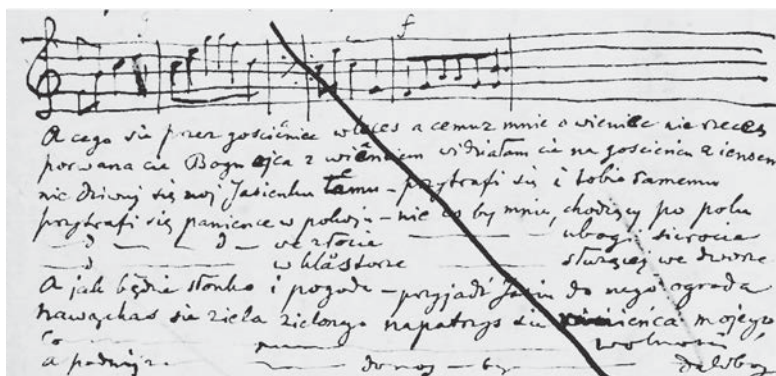 f
A cego sie przez gościniec wleces a cemuz mnie o wieniec nie rzeces
porwana cie Bogu ojca z wiénkiem widziałam cie na gościńcu z
nie dziwuj się moj Jasieńku temu – przytrafi się i tobie samemu
przytrafi się panience w pokoju – nie co by mnie, chodzący po polu
we złocie ubogi sierocie
w klåstorze służącej we dworze
A jak będzie słonko i pogoda – przyjadź Jasiu do nego ogroda
nawąchas sie ziela zielonego napatrzys sie wieńca mojego
wolności
a podwiz